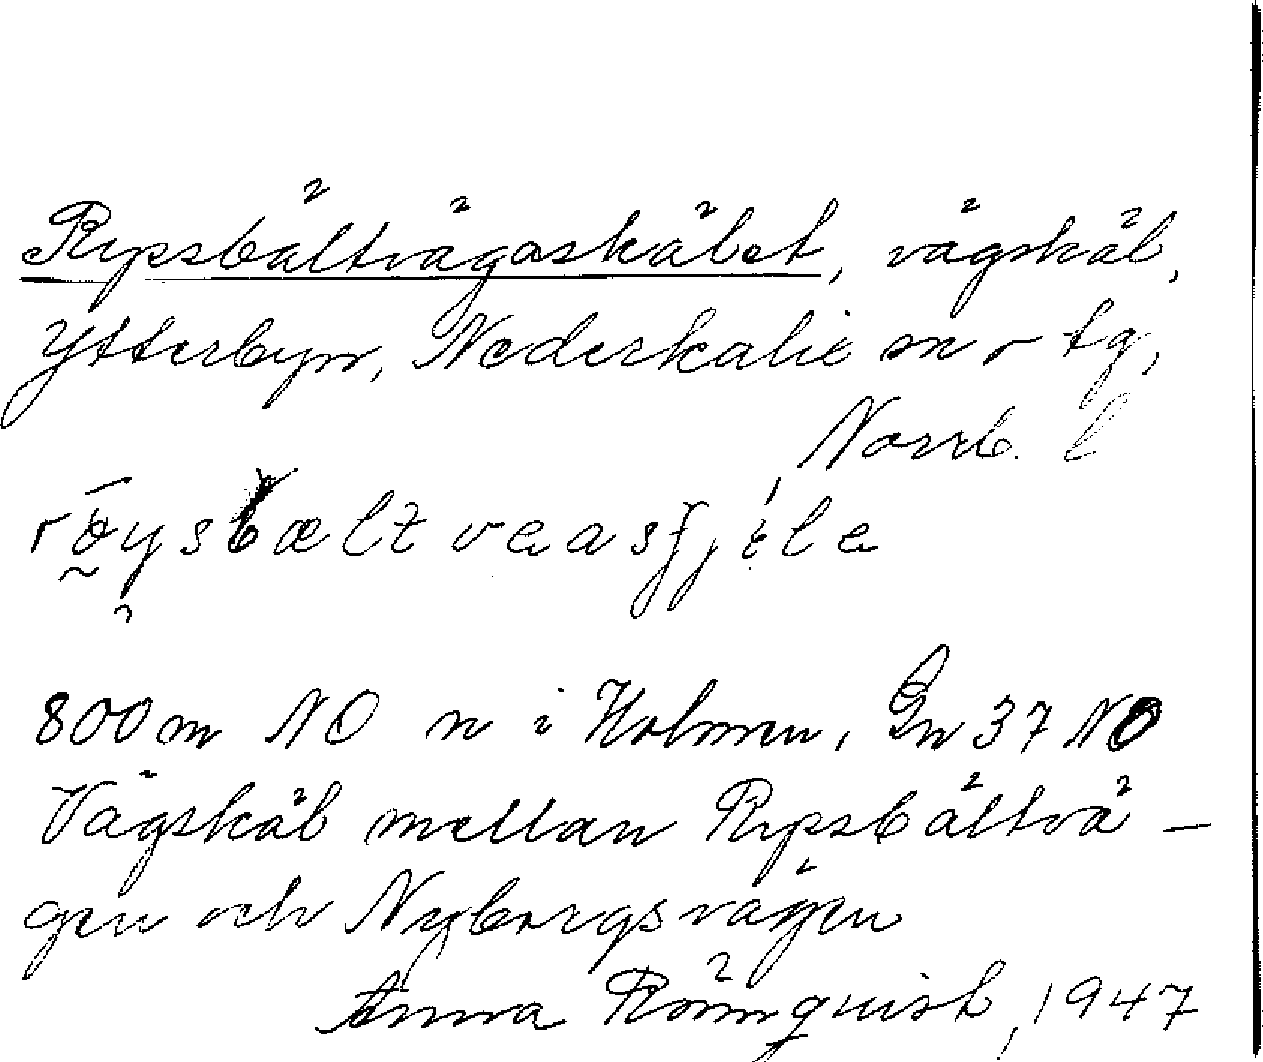 Rypsbältvägaskälet, vägskäl,
Ytterbyn, Nederkalix m o tg,
Norrb. l
800 m NO n i Holmen, Gn 37 NO
Vägskäl mellan Rypsbältvä-
gen och Nyborgsvägen
Anna Römquist, 1947